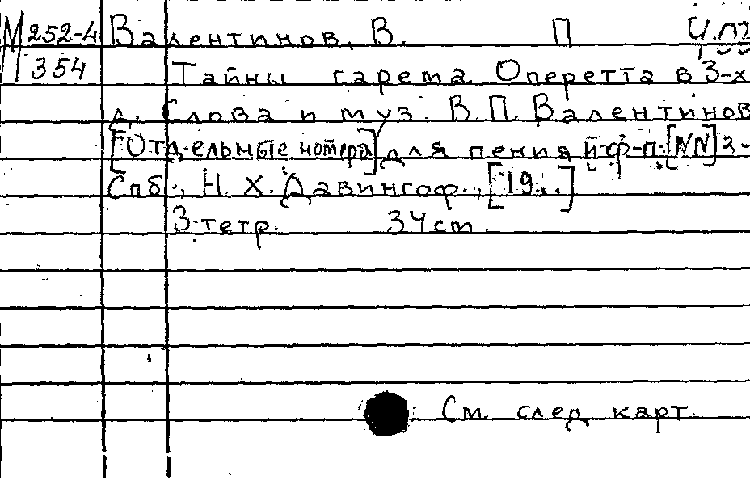 М 252-4 Валентинов, В. П
354 Тайны гарема Оперетта в 3-х
д. Слова и муз. В. П. Валентинов
[Отдельные номера] для пения и ф-п. [NN] 2-
Спб., Н. Х. Давингоф., [19..]
3 тетр. 34 cm.
См. след карт.